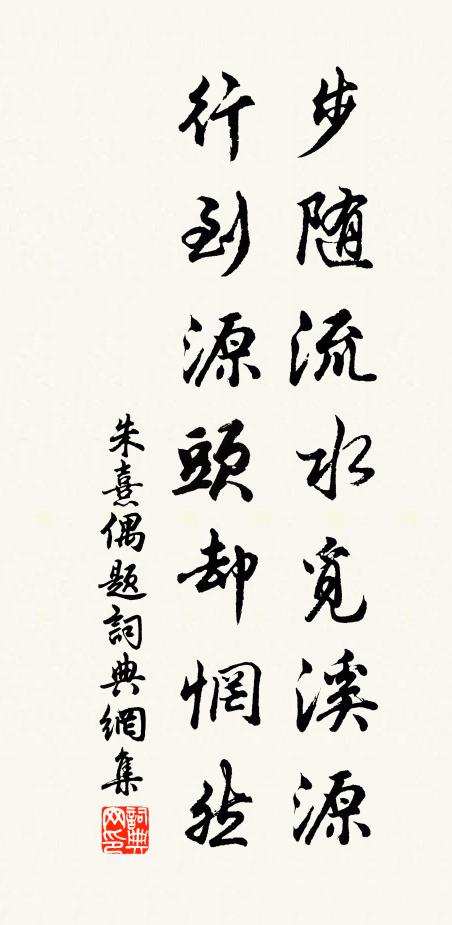 步随流水覓溪源
行到源頭却惘然
朱熹偶题詞典網集
詞典网印